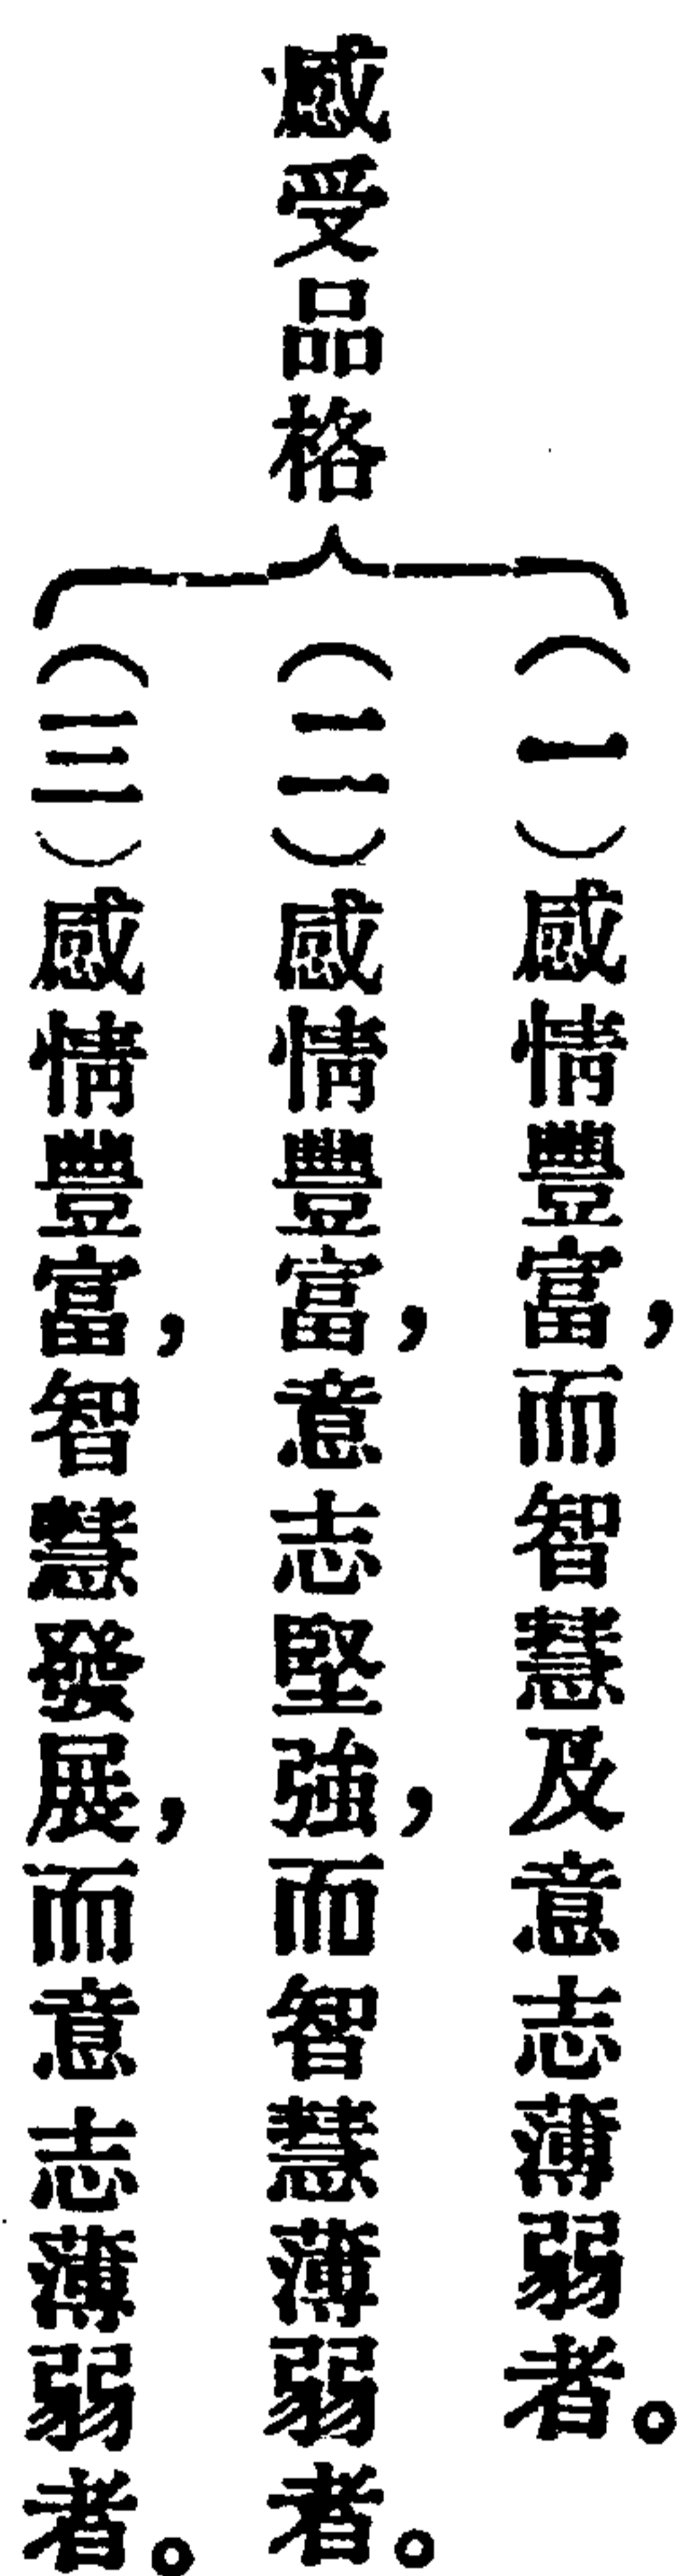 感受品格
（一）感情豐富，而智慧及意志薄弱者。
（二）感情豐富，意志堅強，而智慧薄弱者。
（三）感情豐富，智慧發展，而意志薄弱者。